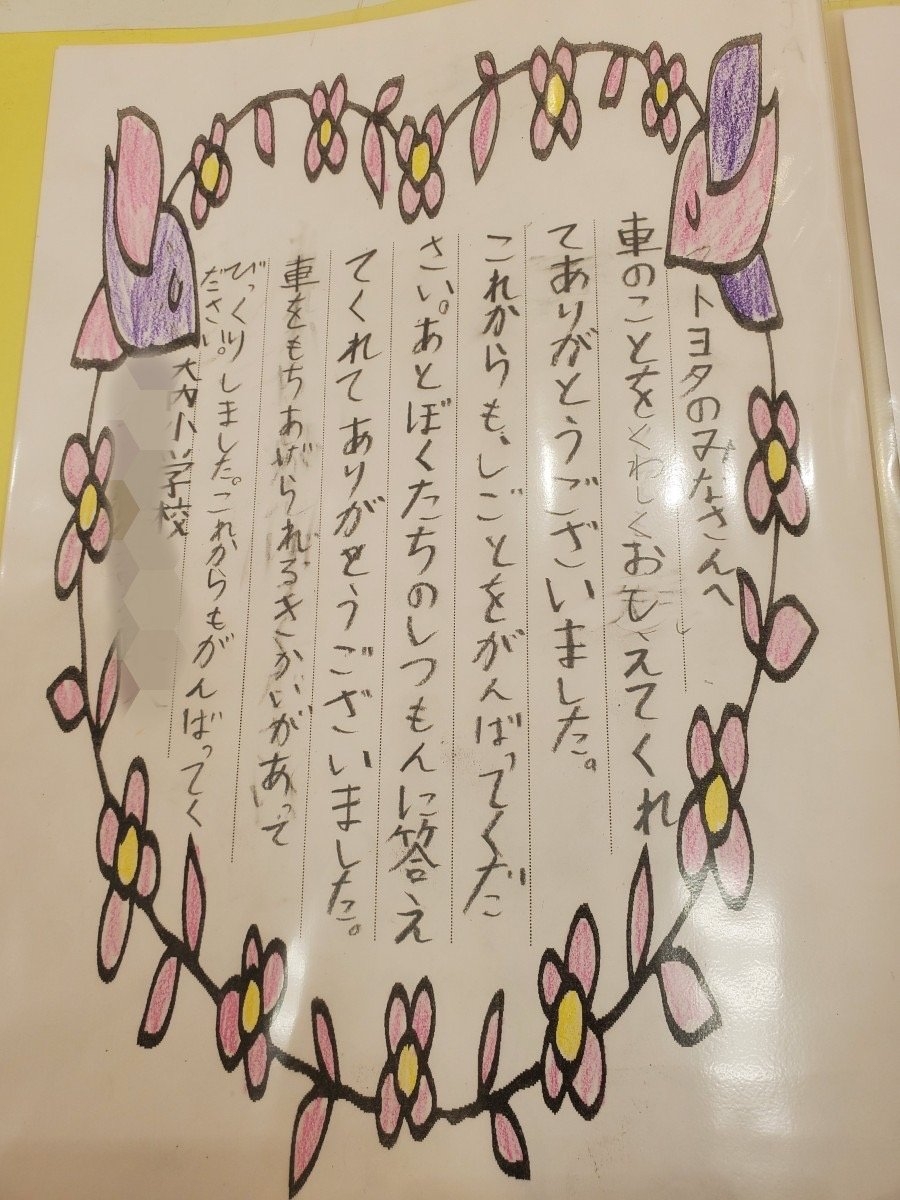 トヨタのみなさんへ
車のことをくわしくおもえてくれ
てありがとうございました。
これからも、しごとをがんばってくだ
さい。あとぼくたちのしつもんに答え
てくれてありがとうございました。
車をもちあげられるきかいがあって
びっくりしました。これからもがんばってく
ださい。
大内小学校